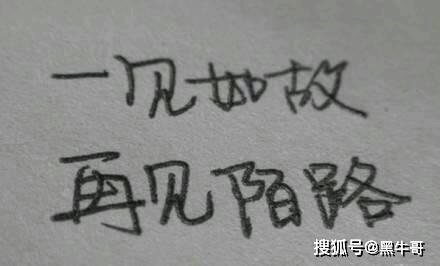 一见如故
再见陌路
搜狐号@黑牛哥